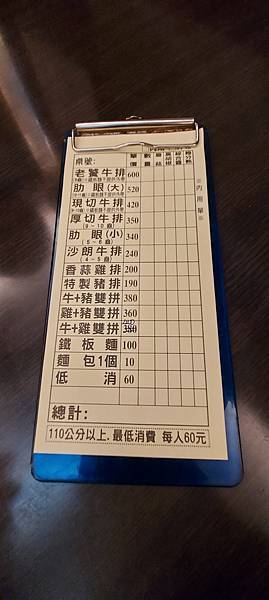 桌號:
單價 數量
老饕牛排 600
肋眼(大) 520
現切牛排 420
厚切牛排 350
(9~10盎)
肋眼(小) 340
(5~6盎)
沙朗牛排 240
(4~5盎)
香蒜雞排 200
特製豬排 190
牛+豬雙拼 380
雞+豬雙拼 360
牛+雞雙拼
鐵板麵 100
麵包1個 10
低消 60
※內用單※
總計:
110公分以上.最低消費 每人60元